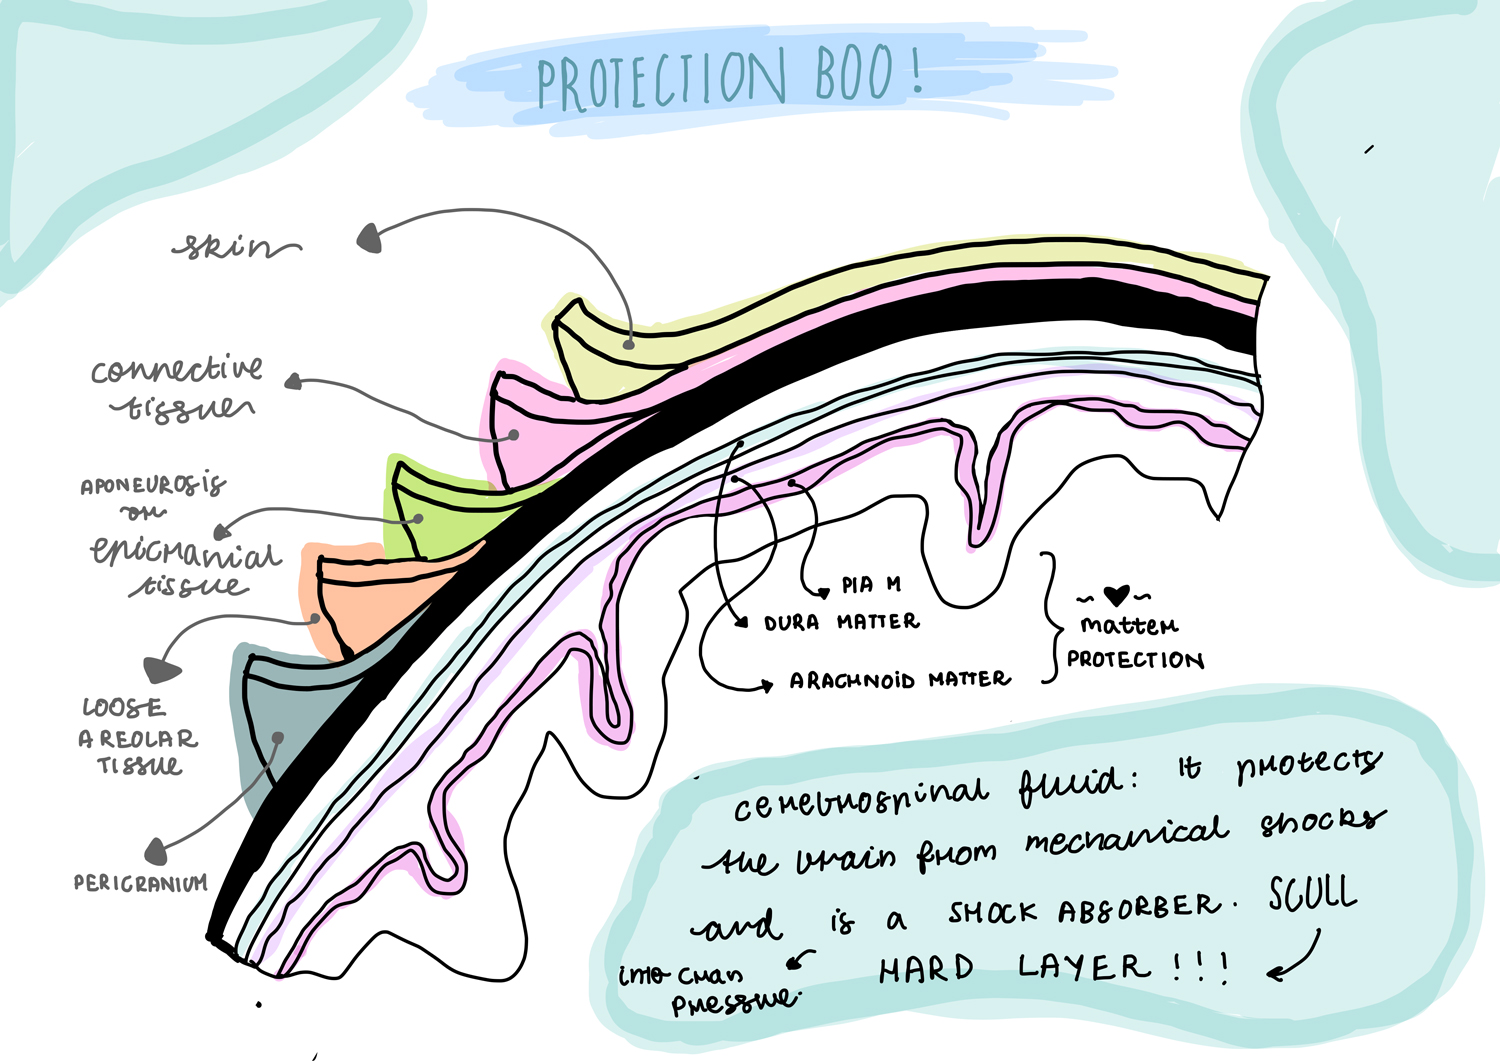 PROTECTION BOO!
skin
connective
tissue
APONEUROSIS
or
epicranial
tissue
LOOSE
AREOLAR
TISSUE
PERICRANIUM
PIA M
DURA MATTER
ARACHNOID MATTER
~♥~
matter
PROTECTION
cerebrospinal fluid: It protects
the brain from mechanical shocks
and is a SHOCK ABSORBER. SCULL
HARD LAYER!!!
pressure.